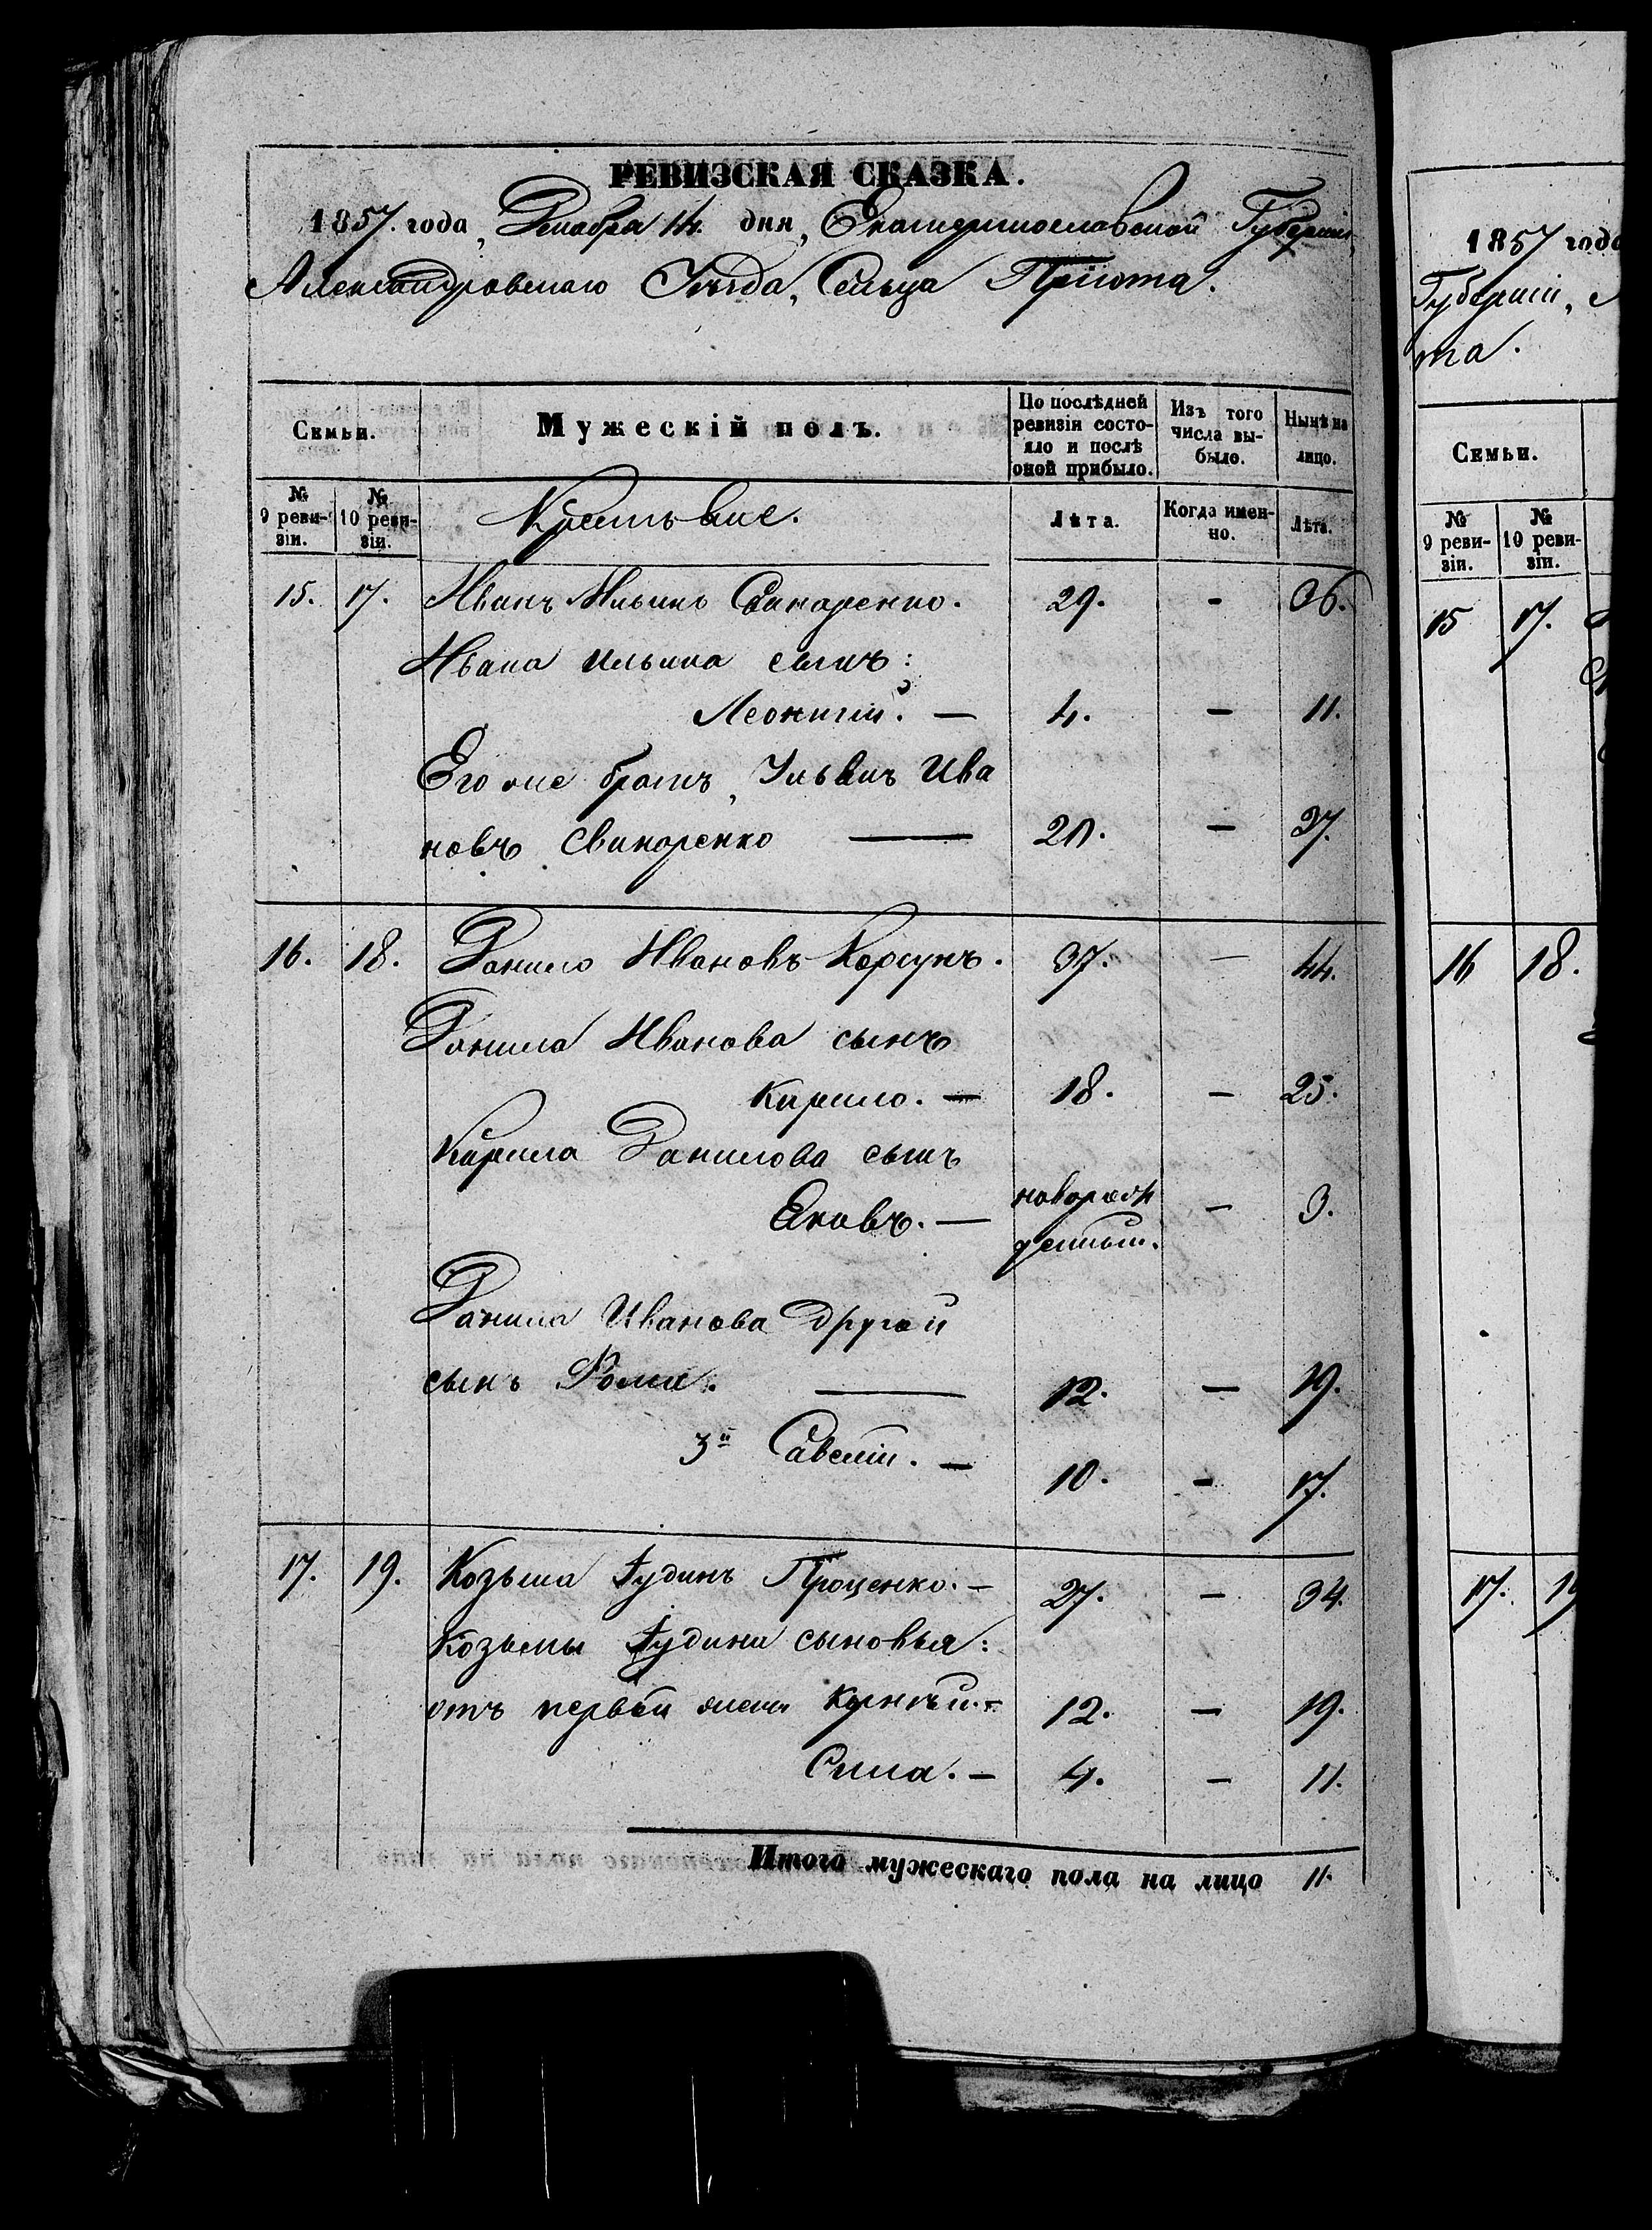 РЕВИЗСКАЯ СКАЗКА.
1857. года, Декабря 14. дня, Екатеринославской Губерніи,
Александровскаго Уѣзда, Сельца Пріюта.
Семьи.
Мужескій полъ.
По послѣдней ревизіи состояло и послѣ оной прибыло.
Изъ того числа выбыло.
Нынѣ на лицо.
№ 9 ревизіи.
№ 10 ревизіи.
Крестьяне.
Лѣта.
Когда именно.
Лѣта.
15. 17. Иванъ Ильинъ Свинаренко. 29. - 36.
Ивана Ильина сынъ:
Леонтий. — 4. — 11.
Его же братъ, Ива
новъ Свинаренко — 20. — 27.
16. 18. Данило Ивановъ Корсунъ. 37. — 44.
Данила Иванова сынъ
Кирило. — 18. — 25.
Кирила Данилова сынъ
Яковъ. — новорож
денный. — 3.
Данила Иванова другой
сынъ Фома. — 12. — 19.
3й Савелій. — 10. - 17.
17. 19. Козьма Іудинъ Проценко. — 27. — 34.
Козьмы Іудина сыновья:
отъ первой жены Корнѣй. — 12. — 19.
Сила. — 4. — 11.
Итого мужескаго пола на лицо 11.
1857 года
Губерніи,
та.
Семьи.
№ 9 ревизіи.
№ 10 ревизіи.
15 17.
16 18.
17.